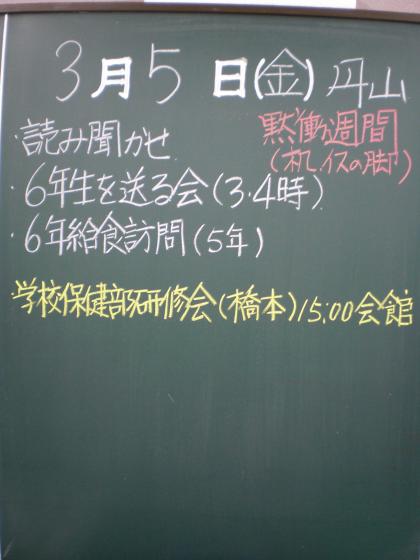 3月5日(金)丹山
・読み聞かせ
黙働週間
(机、イスの脚)
・6年生を送る会(3・4時)
・6年給食訪問(5年)
・学校保健部研修会(橋本)15:00会館